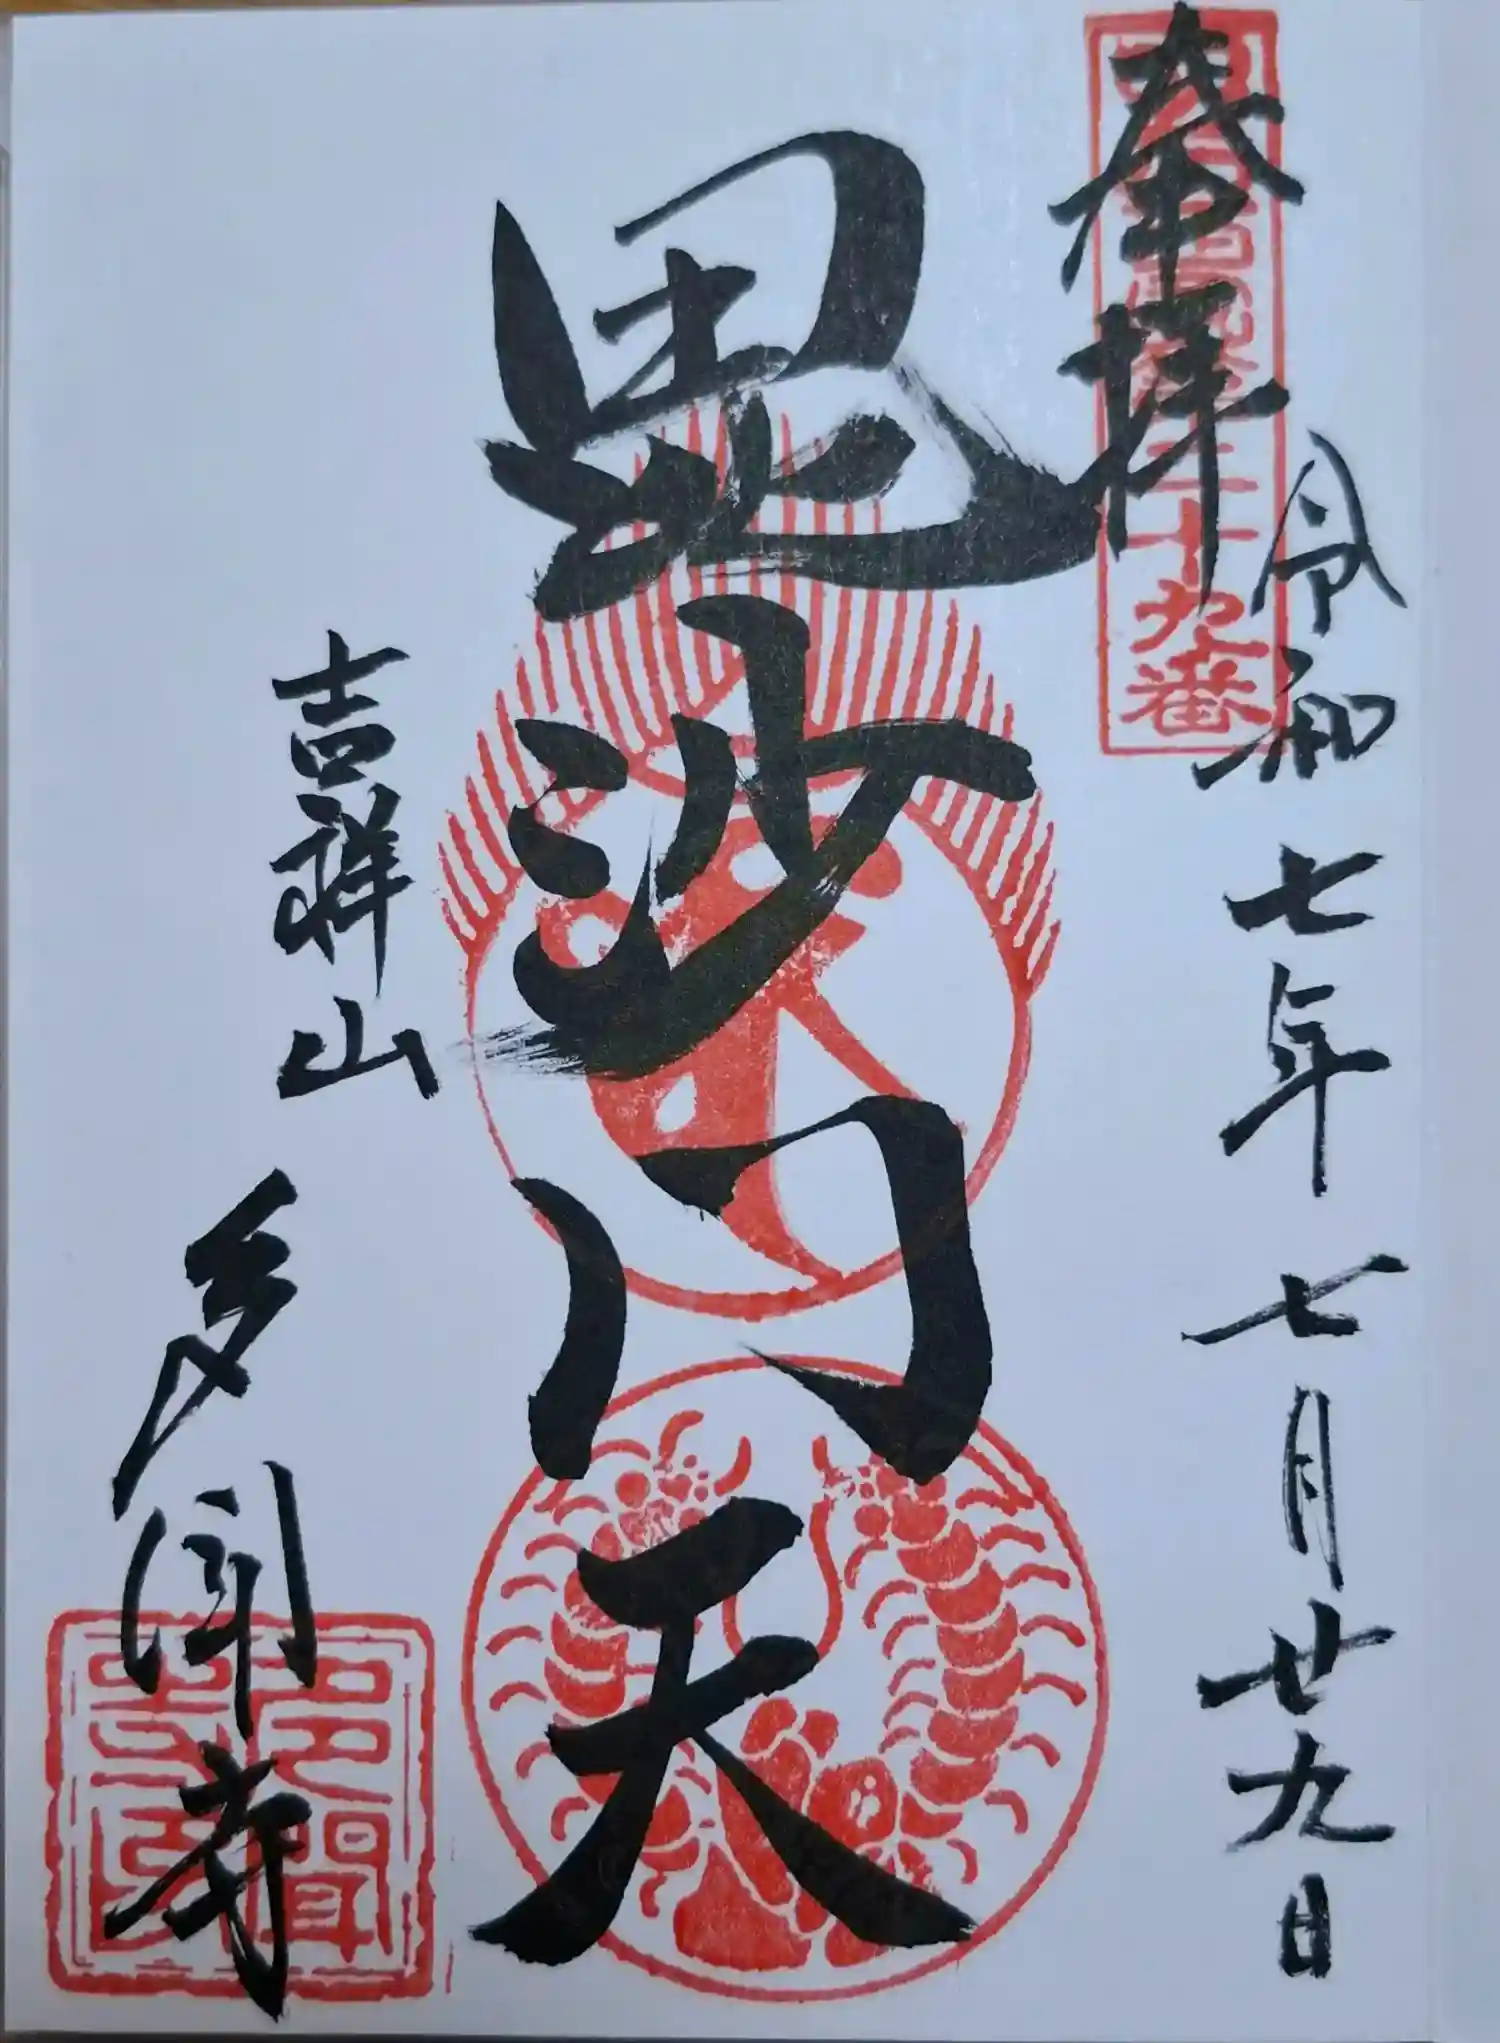 奉拝
令和七年七月廿九日
二十九番
毘沙門天
吉祥山
多聞寺